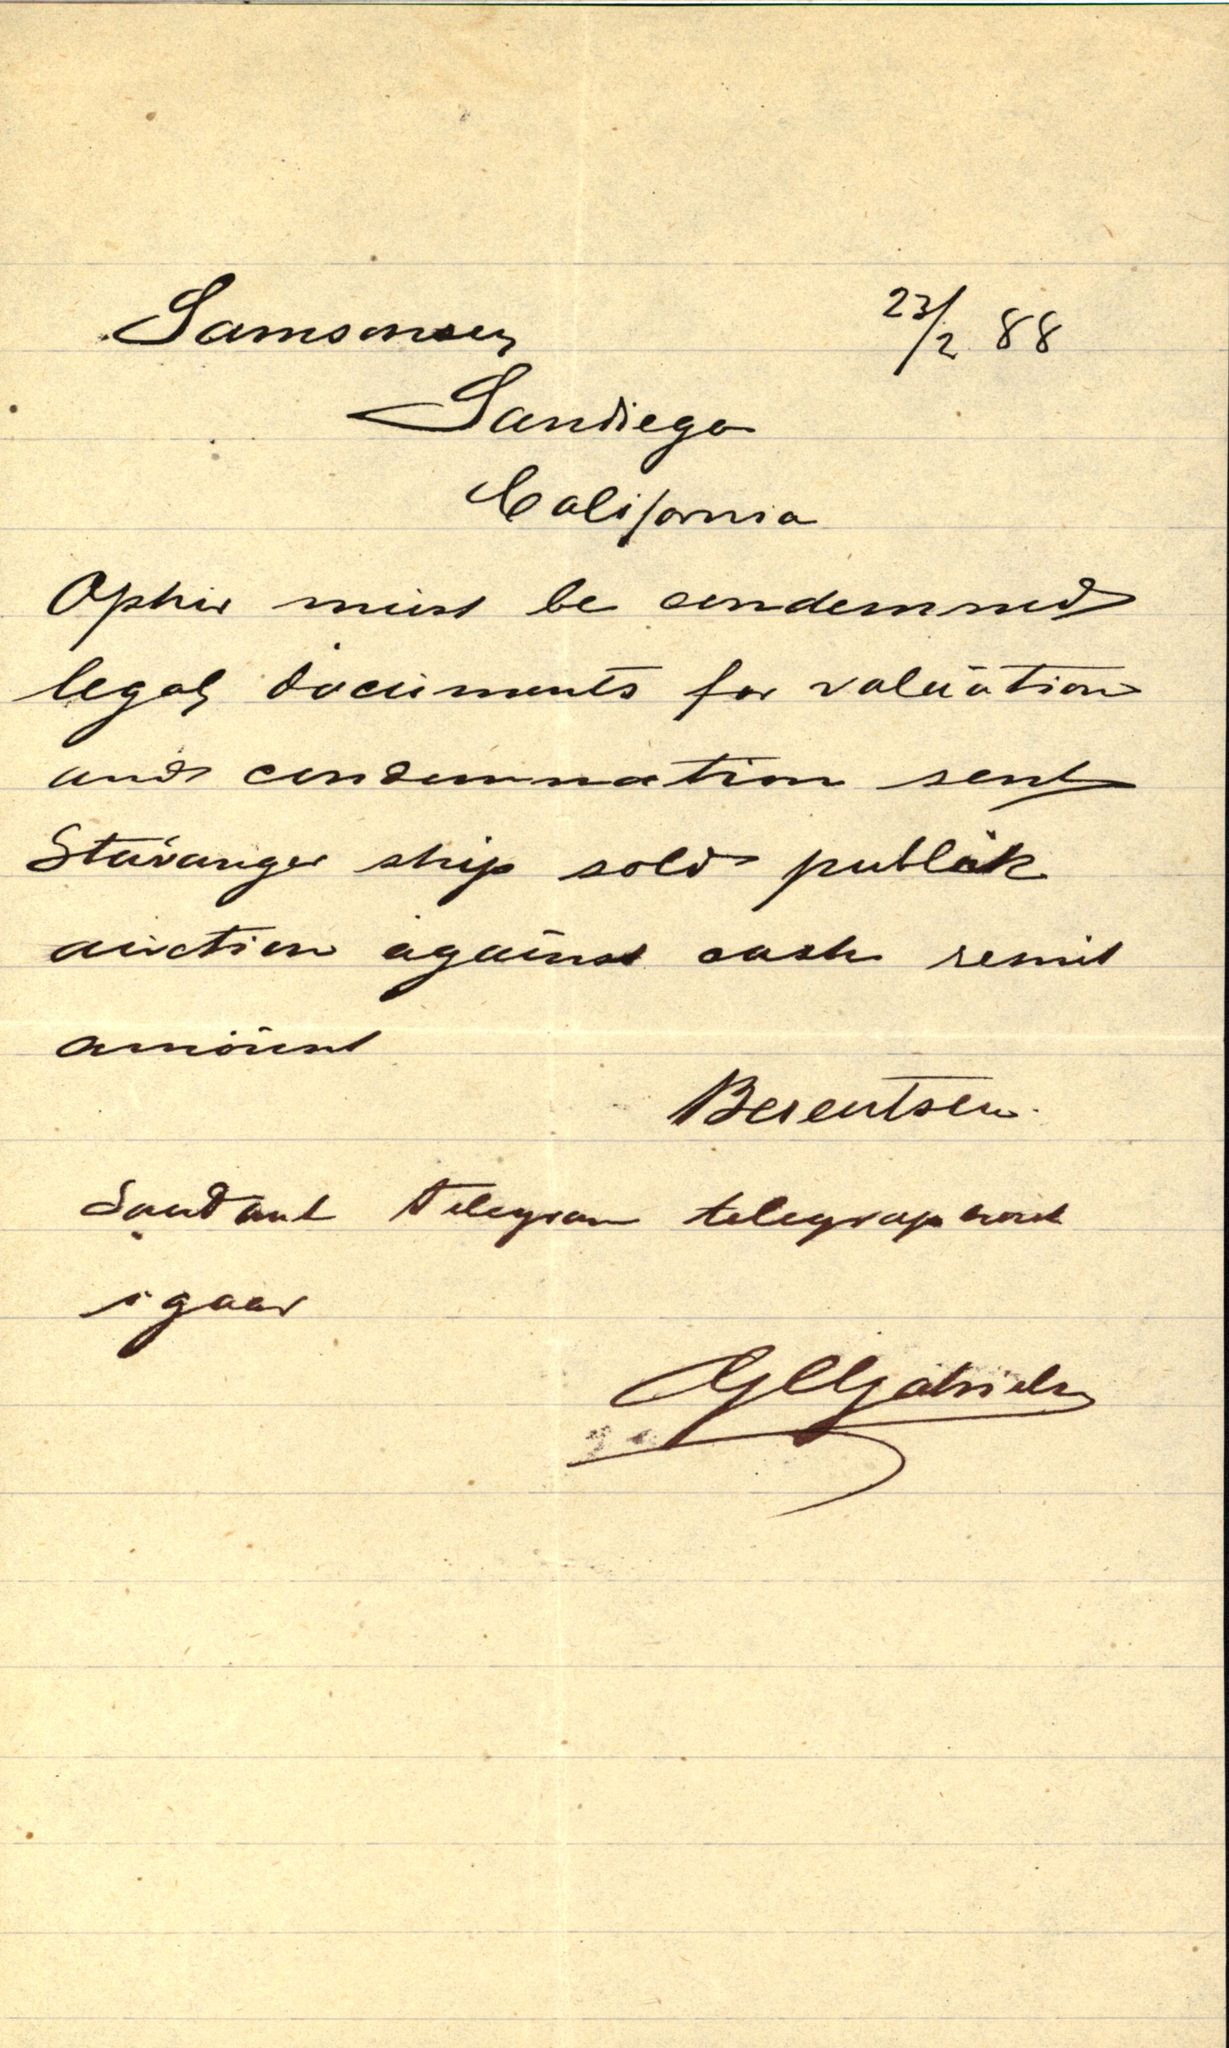 Samsonsen 23/2 88
Sandiego
California
Ophir must be condemned
legal documents for valuation
and condemnation sent
Stavanger ship sold publik
auction against cash remit
amount
Berentsen
Saadant telegram telegraphert
igaar